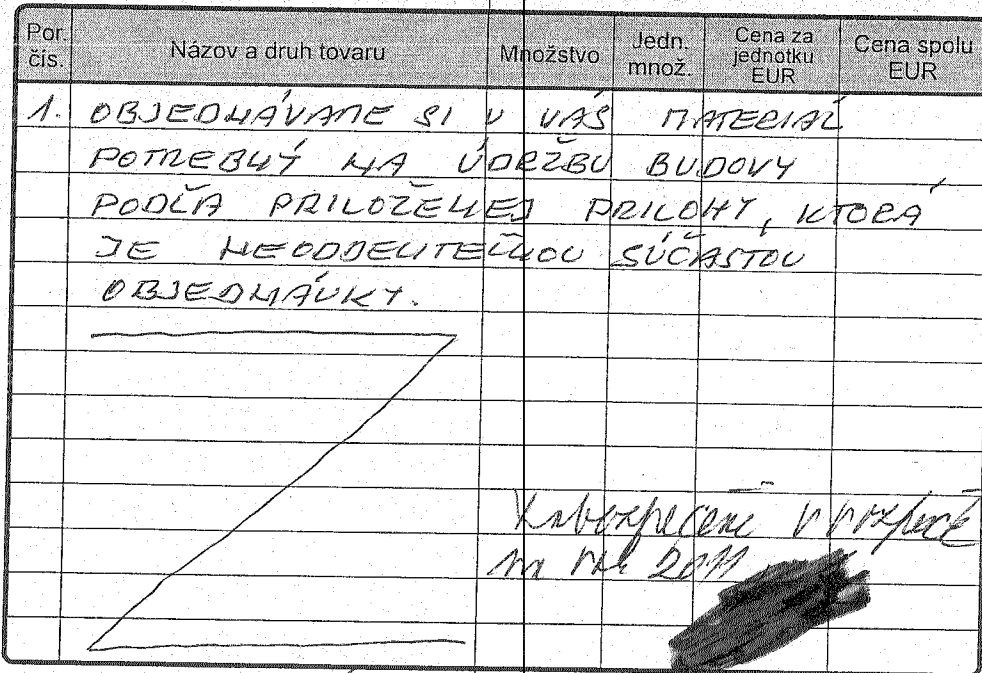 Por. čís. Názov a druh tovaru Množstvo Jedn. množ. Cena za jednotku EUR Cena spolu EUR
1. OBJEDNÁVAME SI U VÁS MATERIÁL
POTREBNÝ NA ÚDRŽBU BUDOVY
PODĽA PRILOŽENEJ PRÍLOHY, KTORÁ
JE NEODDELITEĽNOU SÚČASŤOU
OBJEDNÁVKY.
v rozpočte
na rok 2011